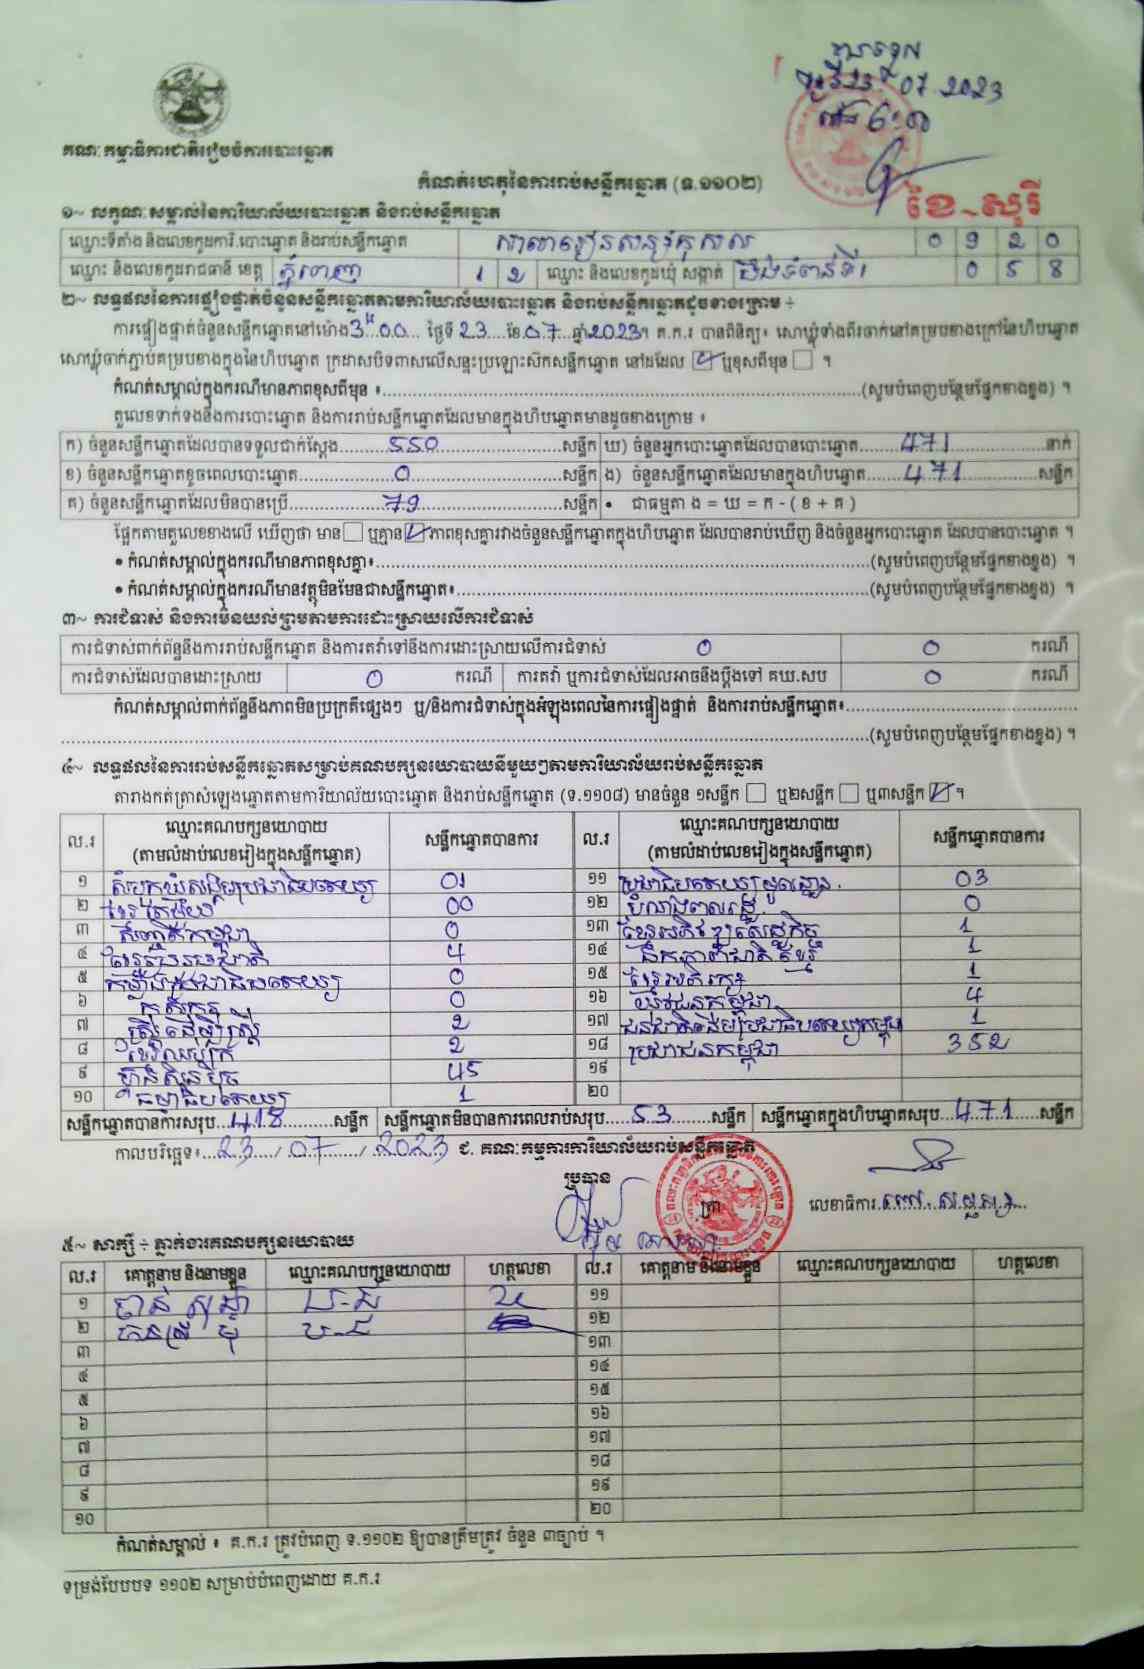 07.2023
គណៈកម្មាធិការជាតិរៀបចំការបោះឆ្នោត
កំណត់ហេតុនៃការរាប់សន្លឹកឆ្នោត (ទ.១១០២)
ខៃ-សូរី
១~ លក្ខណៈសម្គាល់នៃការិយាល័យបោះឆ្នោត និងរាប់សន្លឹកឆ្នោត
ឈ្មោះទីតាំង និងលេខកូដការិ.បោះឆ្នោត និងរាប់សន្លឹកឆ្នោត 0 9 2 0
ឈ្មោះ និងលេខកូដរាជធានី ខេត្ត ភ្នំពេញ 1 2 ឈ្មោះ និងលេខកូដឃុំ សង្កាត់ 0 5 8
២~ លទ្ធផលនៃការផ្ទៀងផ្ទាត់ចំនួនសន្លឹកឆ្នោតតាមការិយាល័យបោះឆ្នោត និងរាប់សន្លឹកឆ្នោតដូចខាងក្រោម ÷
ការផ្ទៀងផ្ទាត់ចំនួនសន្លឹកឆ្នោតនៅម៉ោង 3:00 ថ្ងៃទី 23 ខែ 07 ឆ្នាំ 2023។ គ.ក.រ បានពិនិត្យ៖ សោឃ្លុំទាំងពីរចាក់នៅគម្របខាងក្រៅនៃហិបឆ្នោត
សោឃ្លុំចាក់ភ្ជាប់គម្របខាងក្នុងនៃហិបឆ្នោត ក្រដាសបិទពាសលើសន្ទះប្រឡោះស៊កសន្លឹកឆ្នោត នៅដដែល ☑ ឬខុសពីមុន ☐ ។
កំណត់សម្គាល់ក្នុងករណីមានភាពខុសពីមុន ៖ (សូមបំពេញបន្ថែមផ្នែកខាងខ្នង) ។
តួលេខទាក់ទងនឹងការបោះឆ្នោត និងការរាប់សន្លឹកឆ្នោតដែលមានក្នុងហិបឆ្នោតមានដូចខាងក្រោម ៖
ក) ចំនួនសន្លឹកឆ្នោតដែលបានទទួលជាក់ស្តែង 550 សន្លឹក ឃ) ចំនួនអ្នកបោះឆ្នោតដែលបានបោះឆ្នោត 471 នាក់
ខ) ចំនួនសន្លឹកឆ្នោតខូចពេលបោះឆ្នោត 0 សន្លឹក ង) ចំនួនសន្លឹកឆ្នោតដែលមានក្នុងហិបឆ្នោត 471 សន្លឹក
គ) ចំនួនសន្លឹកឆ្នោតដែលមិនបានប្រើ 79 សន្លឹក • ជាធម្មតា ង = ឃ = ក - ( ខ + គ )
ផ្អែកតាមតួលេខខាងលើ ឃើញថា មាន ☐ ឬគ្មាន ☑ ភាពខុសគ្នារវាងចំនួនសន្លឹកឆ្នោតក្នុងហិបឆ្នោត ដែលបានរាប់ឃើញ និងចំនួនអ្នកបោះឆ្នោត ដែលបានបោះឆ្នោត ។
• កំណត់សម្គាល់ក្នុងករណីមានភាពខុសគ្នា៖ (សូមបំពេញបន្ថែមផ្នែកខាងខ្នង) ។
• កំណត់សម្គាល់ក្នុងករណីមានវត្ថុមិនមែនជាសន្លឹកឆ្នោត៖ (សូមបំពេញបន្ថែមផ្នែកខាងខ្នង) ។
៣~ ការជំទាស់ និងការមិនយល់ព្រមតាមការដោះស្រាយលើការជំទាស់
ការជំទាស់ពាក់ព័ន្ធនឹងការរាប់សន្លឹកឆ្នោត និងការតវ៉ាទៅនឹងការដោះស្រាយលើការជំទាស់ 0 0 ករណី
ការជំទាស់ដែលបានដោះស្រាយ 0 ករណី ការតវ៉ា ឬការជំទាស់ដែលអាចនឹងប្តឹងទៅ គឃ.សប 0 ករណី
កំណត់សម្គាល់ពាក់ព័ន្ធនឹងភាពមិនប្រក្រតីផ្សេងៗ ឬ/និងការជំទាស់ក្នុងអំឡុងពេលនៃការផ្ទៀងផ្ទាត់ និងការរាប់សន្លឹកឆ្នោត៖
(សូមបំពេញបន្ថែមផ្នែកខាងខ្នង) ។
៤~ លទ្ធផលនៃការរាប់សន្លឹកឆ្នោតសម្រាប់គណបក្សនយោបាយនីមួយៗតាមការិយាល័យរាប់សន្លឹកឆ្នោត
តារាងកត់ត្រាសំឡេងឆ្នោតតាមការិយាល័យបោះឆ្នោត និងរាប់សន្លឹកឆ្នោត (ទ.១១០៨) មានចំនួន ១សន្លឹក ☐ ឬ២សន្លឹក ☐ ឬ៣សន្លឹក ☑ ។
ល.រ ឈ្មោះគណបក្សនយោបាយ (តាមលំដាប់លេខរៀងក្នុងសន្លឹកឆ្នោត) សន្លឹកឆ្នោតបានការ ល.រ ឈ្មោះគណបក្សនយោបាយ (តាមលំដាប់លេខរៀងក្នុងសន្លឹកឆ្នោត) សន្លឹកឆ្នោតបានការ
១ សំបុកឃ្មុំសង្គមប្រជាធិបតេយ្យ 01 ១១ ប្រជាធិបតេយ្យមូលដ្ឋាន 03
២ 00 ១២ 0
៣ កម្ពុជា 0 ១៣ ខ្មែរអភិវឌ្ឍសេដ្ឋកិច្ច 1
៤ ខ្មែររួបរួមជាតិ 4 ១៤ ឯកភាពជាតិខ្មែរ 1
៥ កម្លាំងប្រជាធិបតេយ្យ 0 ១៥ ខ្មែរអភិរក្ស 1
៦ កសិករ 0 ១៦ យុវជនកម្ពុជា 4
៧ ស្ត្រីដើម្បីស្ត្រី 2 ១៧ ជនជាតិដើមប្រជាធិបតេយ្យកម្ពុជា 1
៨ 2 ១៨ ប្រជាជនកម្ពុជា 352
៩ ហ៊្វុនស៊ិនប៉ិច 45 ១៩
១០ ធម្មាធិបតេយ្យ 1 ២០
សន្លឹកឆ្នោតបានការសរុប 418 សន្លឹក សន្លឹកឆ្នោតមិនបានការពេលរាប់សរុប 53 សន្លឹក សន្លឹកឆ្នោតក្នុងហិបឆ្នោតសរុប 471 សន្លឹក
កាលបរិច្ឆេទ៖ 23 / 07 / 2023 ជ. គណៈកម្មការការិយាល័យរាប់សន្លឹកឆ្នោត
ប្រធាន
ត្រា លេខាធិការ
៥~ សាក្សី ÷ ភ្នាក់ងារគណបក្សនយោបាយ
ល.រ គោត្តនាម និងនាមខ្លួន ឈ្មោះគណបក្សនយោបាយ ហត្ថលេខា ល.រ គោត្តនាម និងនាមខ្លួន ឈ្មោះគណបក្សនយោបាយ ហត្ថលេខា
១ ១១
២ ១២
៣ ១៣
៤ ១៤
៥ ១៥
៦ ១៦
៧ ១៧
៨ ១៨
៩ ១៩
១០ ២០
កំណត់សម្គាល់ ៖ គ.ក.រ ត្រូវបំពេញ ទ.១១០២ ឱ្យបានត្រឹមត្រូវ ចំនួន ៣ច្បាប់ ។
ទម្រង់បែបបទ ១១០២ សម្រាប់បំពេញដោយ គ.ក.រ